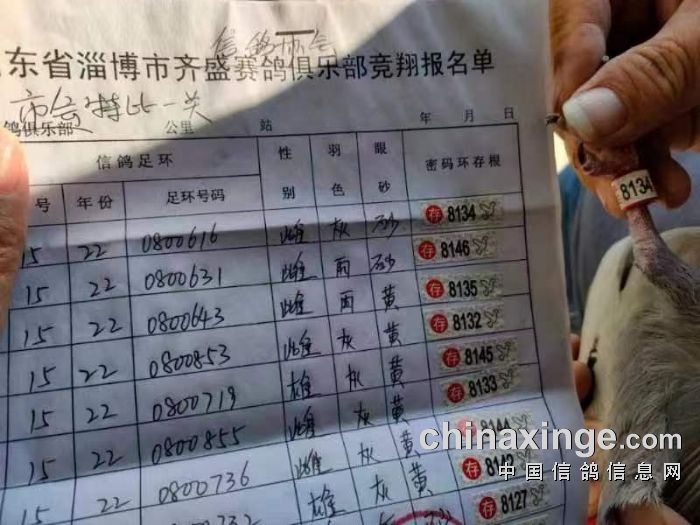 信鸽协会
东省淄博市齐盛赛鸽俱乐部竞翔报名单
市会特比一关
鸽俱乐部 公里 站 年 月 日
信鸽足环 性别 羽色 眼砂 密码环存根
号 年份 足环号码
15 22 0800616 雌 灰 砂 存 8134
15 22 0800631 雌 雨 砂 存 8146
15 22 0800643 雌 雨 黄 存 8135
15 22 0800853 雌 灰 黄 存 8132
15 22 0800719 雄 灰 黄 存 8145
15 22 0800855 雌 灰 黄 存 8133
15 22 0800736 雌 灰 黄 8144
22 雄 灰 黄 存 8142
存 8127
8134
chinaxinge.com
中国信鸽信息网